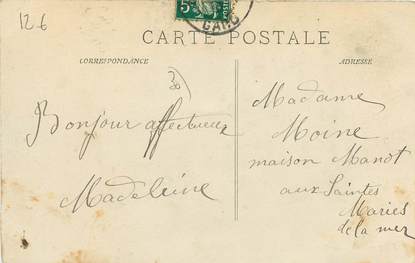 12 6
5
GARD
CARTE POSTALE
CORRESPONDANCE
ADRESSE
Bonjour affectueux
Madeleine
Madame
Moine
maison Manot
aux Saintes
Maries
de la mer